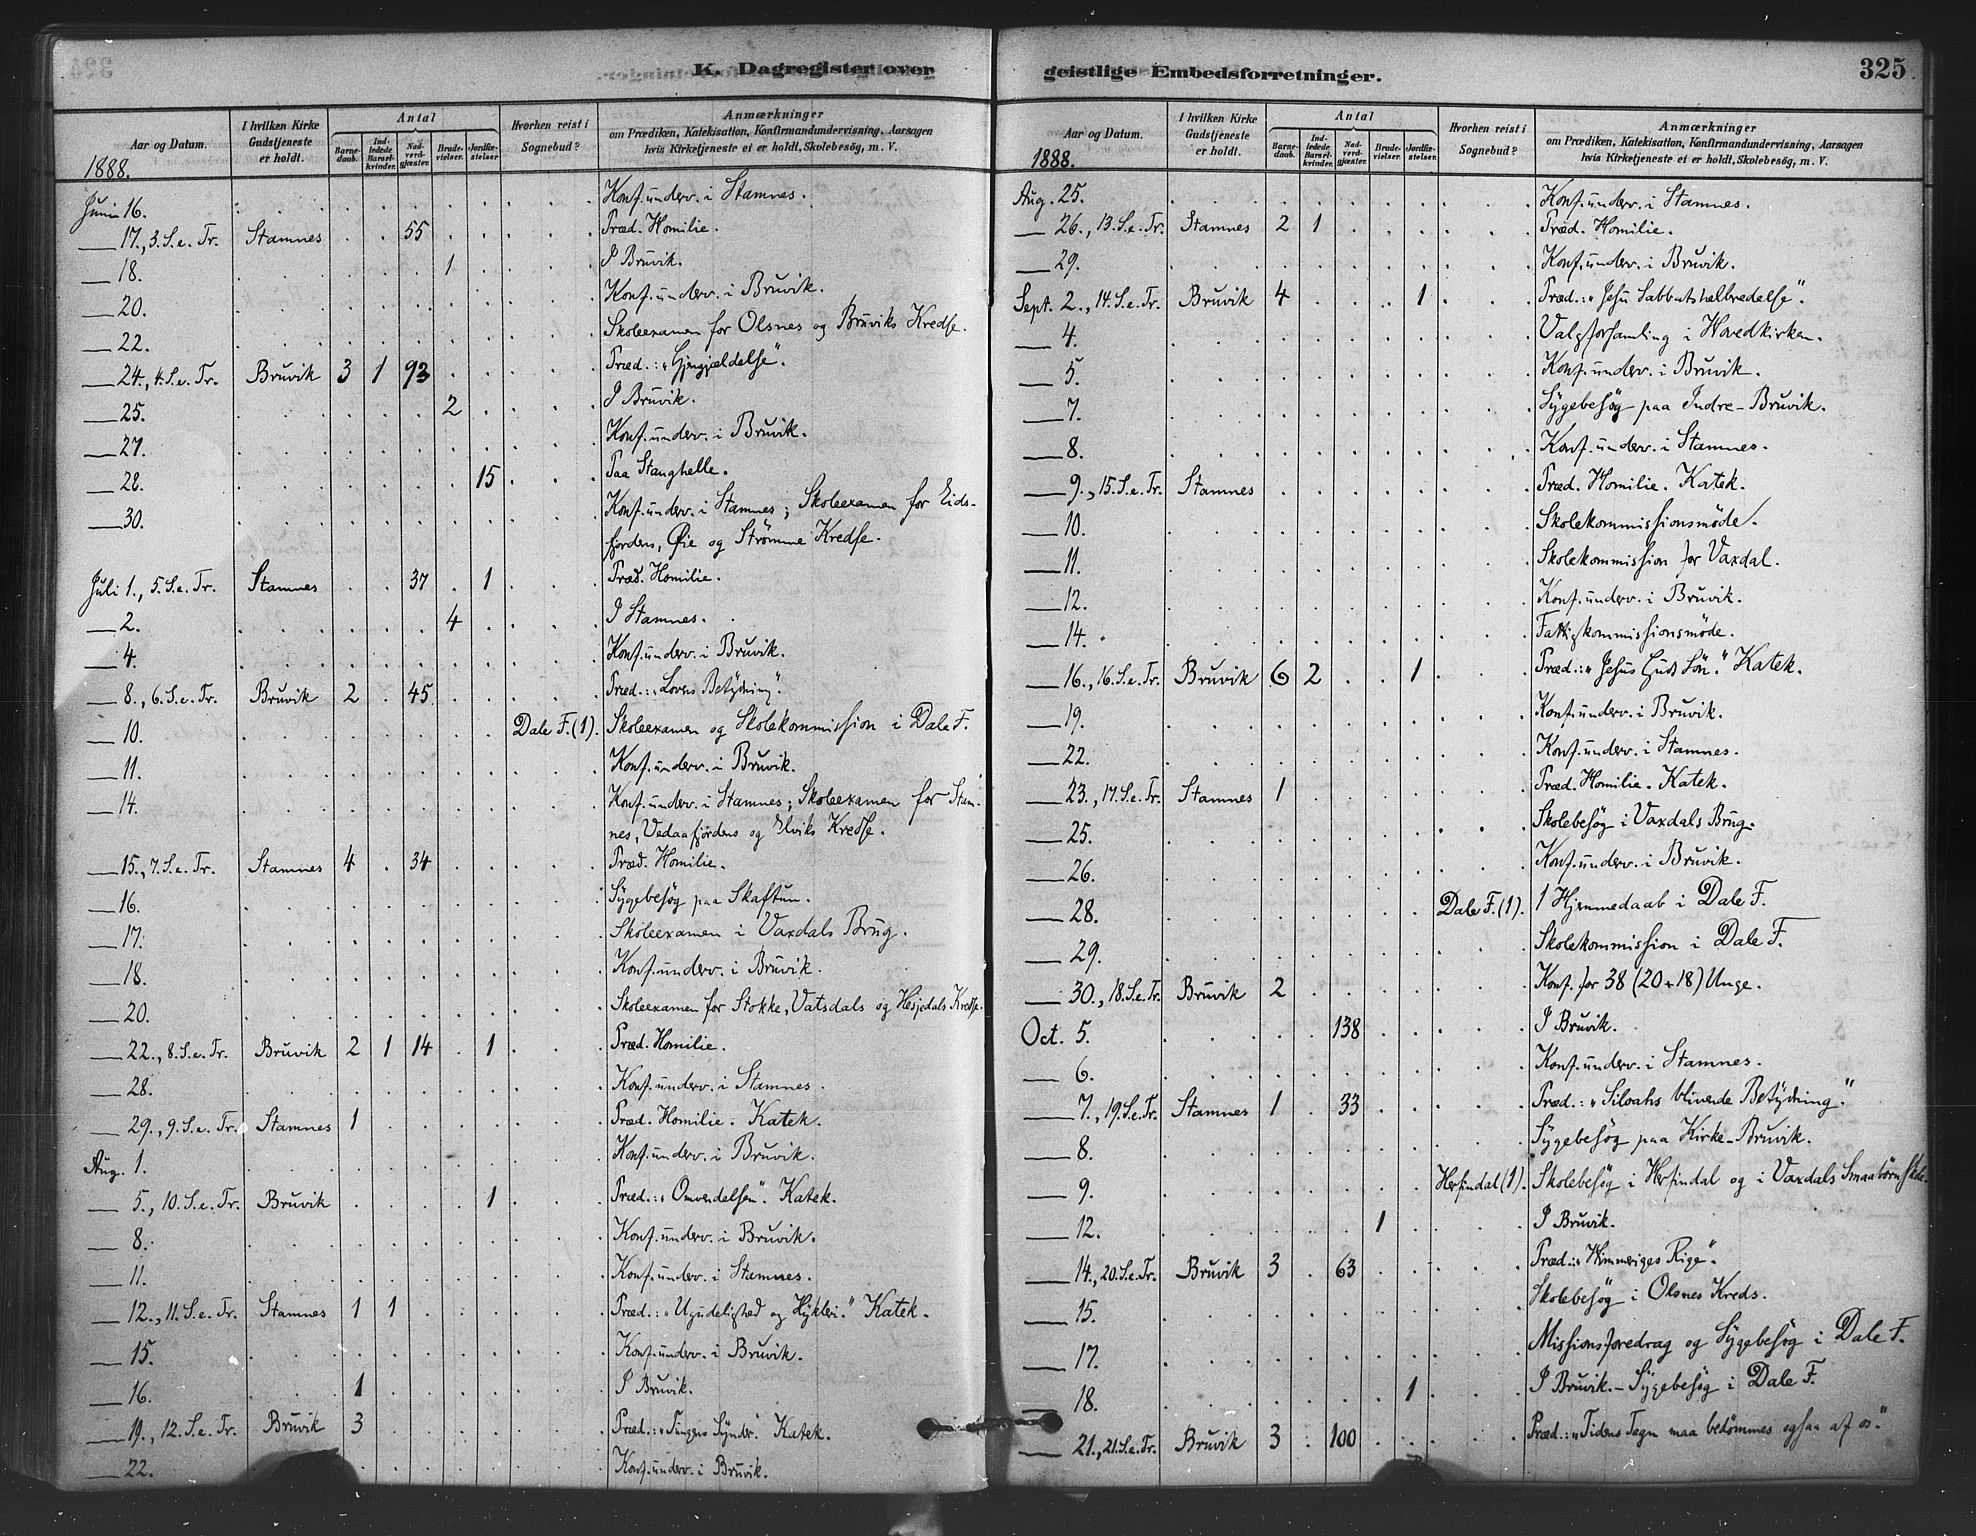 K. Dagregister over
Aar og Datum.
I hvilken Kirke Gudstjeneste er holdt.
Antal
Barnedaab.
Indledede Barselkvinder.
Nadverdgjæster.
Brudevielser.
Jordfæstelser
Hvorhen reist i Sognebud?
Anmærkninger
om Prædiken, Katekisation, Konfirmandundervisning, Aarsagen
hvis Kirketjeneste ei er holdt, Skolebesøg, m. V.
1888.
Juni 16. Konf.underv. i Stamnes.
— 17., 3. S. e. Tr. Stamnes 55 Præd. Homilie.
— 18. 1 I Bruvik.
— 20. Konf.underv. i Bruvik.
— 22. Skoleexamen for Olsnes og Bruviks Kredse.
— 24., 4. S. e. Tr. Bruvik 3 1 93 Præd.: „Gjengjældelse“.
— 25. 2 I Bruvik.
— 27. Konf.underv. i Bruvik.
— 28. 15 Paa Stanghelle.
— 30. Konf.underv. i Stamnes; Skoleexamen for Eids-
fjordens, Øie og Strömme Kredse.
Juli 1., 5. S. e. Tr. Stamnes 37 1 Præd. Homilie.
— 2. 4 I Stamnes.
— 4. Konf.underv. i Bruvik.
— 8., 6. S. e. Tr. Bruvik 2 45 Præd.: „Lovens Betydning“.
— 10. Dale F. (1). Skoleexamen og Skolekommission i Dale F.
— 11. Konf.underv. i Bruvik.
— 14. Konf.underv. i Stamnes; Skoleexamen for Stam-
nes, Vedaafjordens og Elviks Kredse.
— 15., 7. S. e. Tr. Stamnes 4 34 Præd. Homilie.
— 16. Sygebesøg paa Skaftun.
— 17. Skoleexamen i Vaxdals Brug.
— 18. Konf.underv. i Bruvik.
— 20. Skoleexamen for Stokke, Vatsdals og Hesjedals Kredse.
— 22., 8. S. e. Tr. Bruvik 2 1 14 1 Præd. Homilie.
— 28. Konf.underv. i Stamnes.
— 29., 9. S. e. Tr. Stamnes 1 Præd. Homilie. Katek.
Aug. 1. Konf.underv. i Bruvik.
— 5., 10. S. e. Tr. Bruvik 1 Præd.: „Omvendelsen“. Katek.
— 8. Konf.underv. i Bruvik.
— 11. Konf.underv. i Stamnes.
— 12., 11. S. e. Tr. Stamnes 1 1 Præd.: „Ugudelighed og Hykleri.“ Katek.
— 15. Konf.underv. i Bruvik.
— 16. 1 I Bruvik.
— 19., 12. S. e. Tr. Bruvik 3 Præd.: „Tungens Synder“. Katek.
— 22. Konf.underv. i Bruvik.
geistlige Embedsforretninger.
325
Aar og Datum.
I hvilken Kirke Gudstjeneste er holdt.
Antal
Barnedaab.
Indledede Barselkvinder.
Nadverdgjæster.
Brudevielser.
Jordfæstelser.
Hvorhen reist i Sognebud?
Anmærkninger
om Prædiken, Katekisation, Konfirmandundervisning, Aarsagen
hvis Kirketjeneste ei er holdt, Skolebesøg, m. V.
1888.
Aug. 25. Konf.underv. i Stamnes.
— 26., 13. S. e. Tr. Stamnes 2 1 Præd. Homilie.
— 29. Konf.underv. i Bruvik.
Sept. 2., 14. S. e. Tr. Bruvik 4 1 Præd.: „Jesu Sabbatshelbredelse“.
— 4. Valgforsamling i Hovedkirken.
— 5. Konf.underv. i Bruvik.
— 7. Sygebesøg paa Indre-Bruvik.
— 8. Konf.underv. i Stamnes.
— 9., 15. S. e. Tr. Stamnes Præd. Homilie. Katek.
— 10. Skolekommissionsmöde.
— 11. Skolekommission for Vaxdal.
— 12. Konf.underv. i Bruvik.
— 14. Fattigkommissionsmöde.
— 16., 16. S. e. Tr. Bruvik 6 2 1 Præd.: „Jesus Guds Sön.“ Katek.
— 19. Konf.underv. i Bruvik.
— 22. Konf.underv. i Stamnes.
— 23., 17. S. e. Tr. Stamnes 1 Præd. Homilie. Katek.
— 25. Skolebesøg i Vaxdals Brug.
— 26. Konf.underv. i Bruvik.
— 28. Dale F. (1). 1 Hjemmedaab i Dale F.
— 29. Skolekommission i Dale F.
— 30., 18. S. e. Tr. Bruvik 2 Konf. for 38 (20+18) Unge.
Oct. 5. 138 I Bruvik.
— 6. Konf.underv. i Stamnes.
— 7., 19. S. e. Tr. Stamnes 1 33 Præd.: „Siloahs blivende Betydning“.
— 8. Sygebesøg paa Kirke-Bruvik.
— 9. Herfindal (1). Skolebesøg i Herfindal og i Vaxdals Smaabörnskole.
— 12. 1 I Bruvik.
— 14., 20. S. e. Tr. Bruvik 3 63 Præd.: „Himmeriges Rige“.
— 15. Skolebesøg i Olsnes Kreds.
— 17. Missionsforedrag og Sygebesøg i Dale F.
— 18. 1 I Bruvik. – Sygebesøg i Dale F.
— 21., 21. S. e. Tr. Bruvik 3 100 Præd.: „Tidens Tegn maa bedömmes ogsaa af os“.